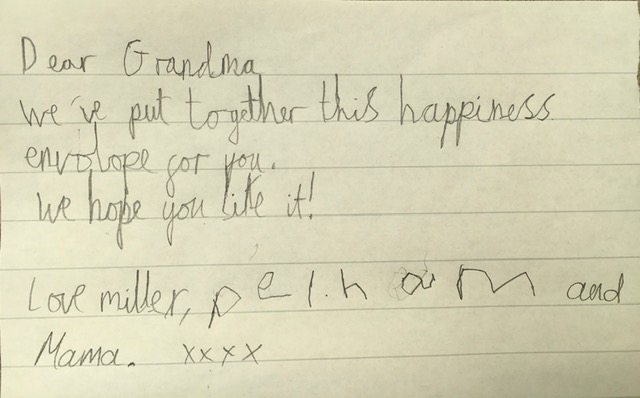 Dear Grandma
We've put together this happiness
envolope for you.
We hope you like it!
Love miller, pelham and
Mama. xxxx